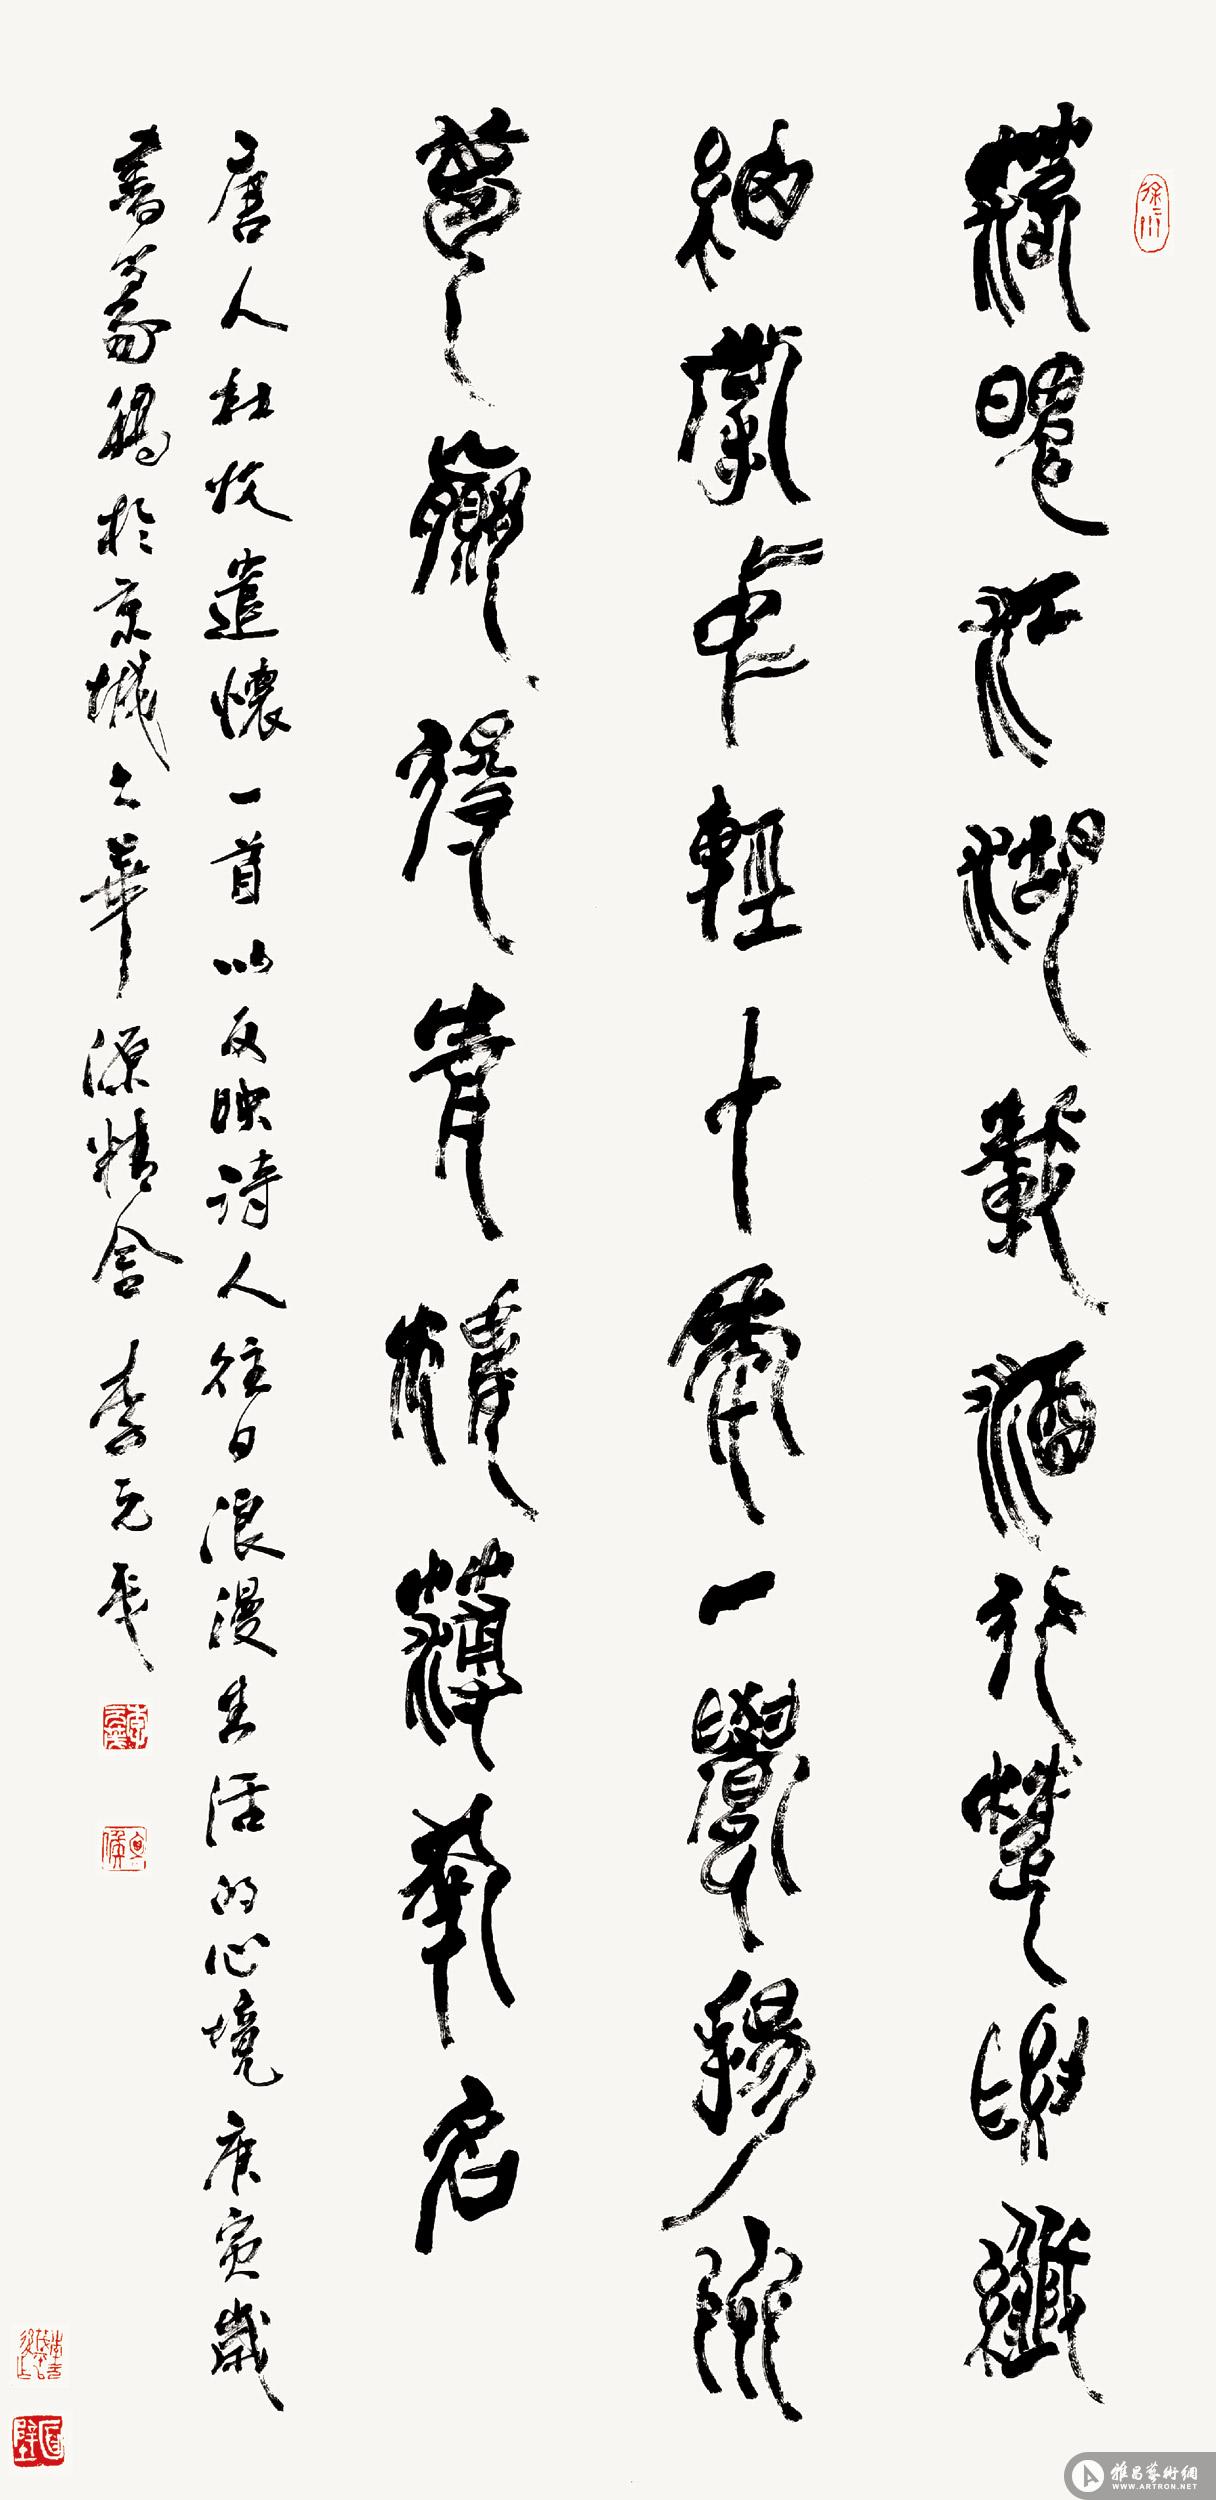 落魄江湖載酒行楚腰纖
細掌中輕十年一覺揚州
夢贏得青樓薄倖名
唐人杜牧遣懷一首以反映詩人往日浪漫生活的心境庚寅歲
於京城之華源精舍李元
雅昌藝術網
WWW.ARTRON.NET